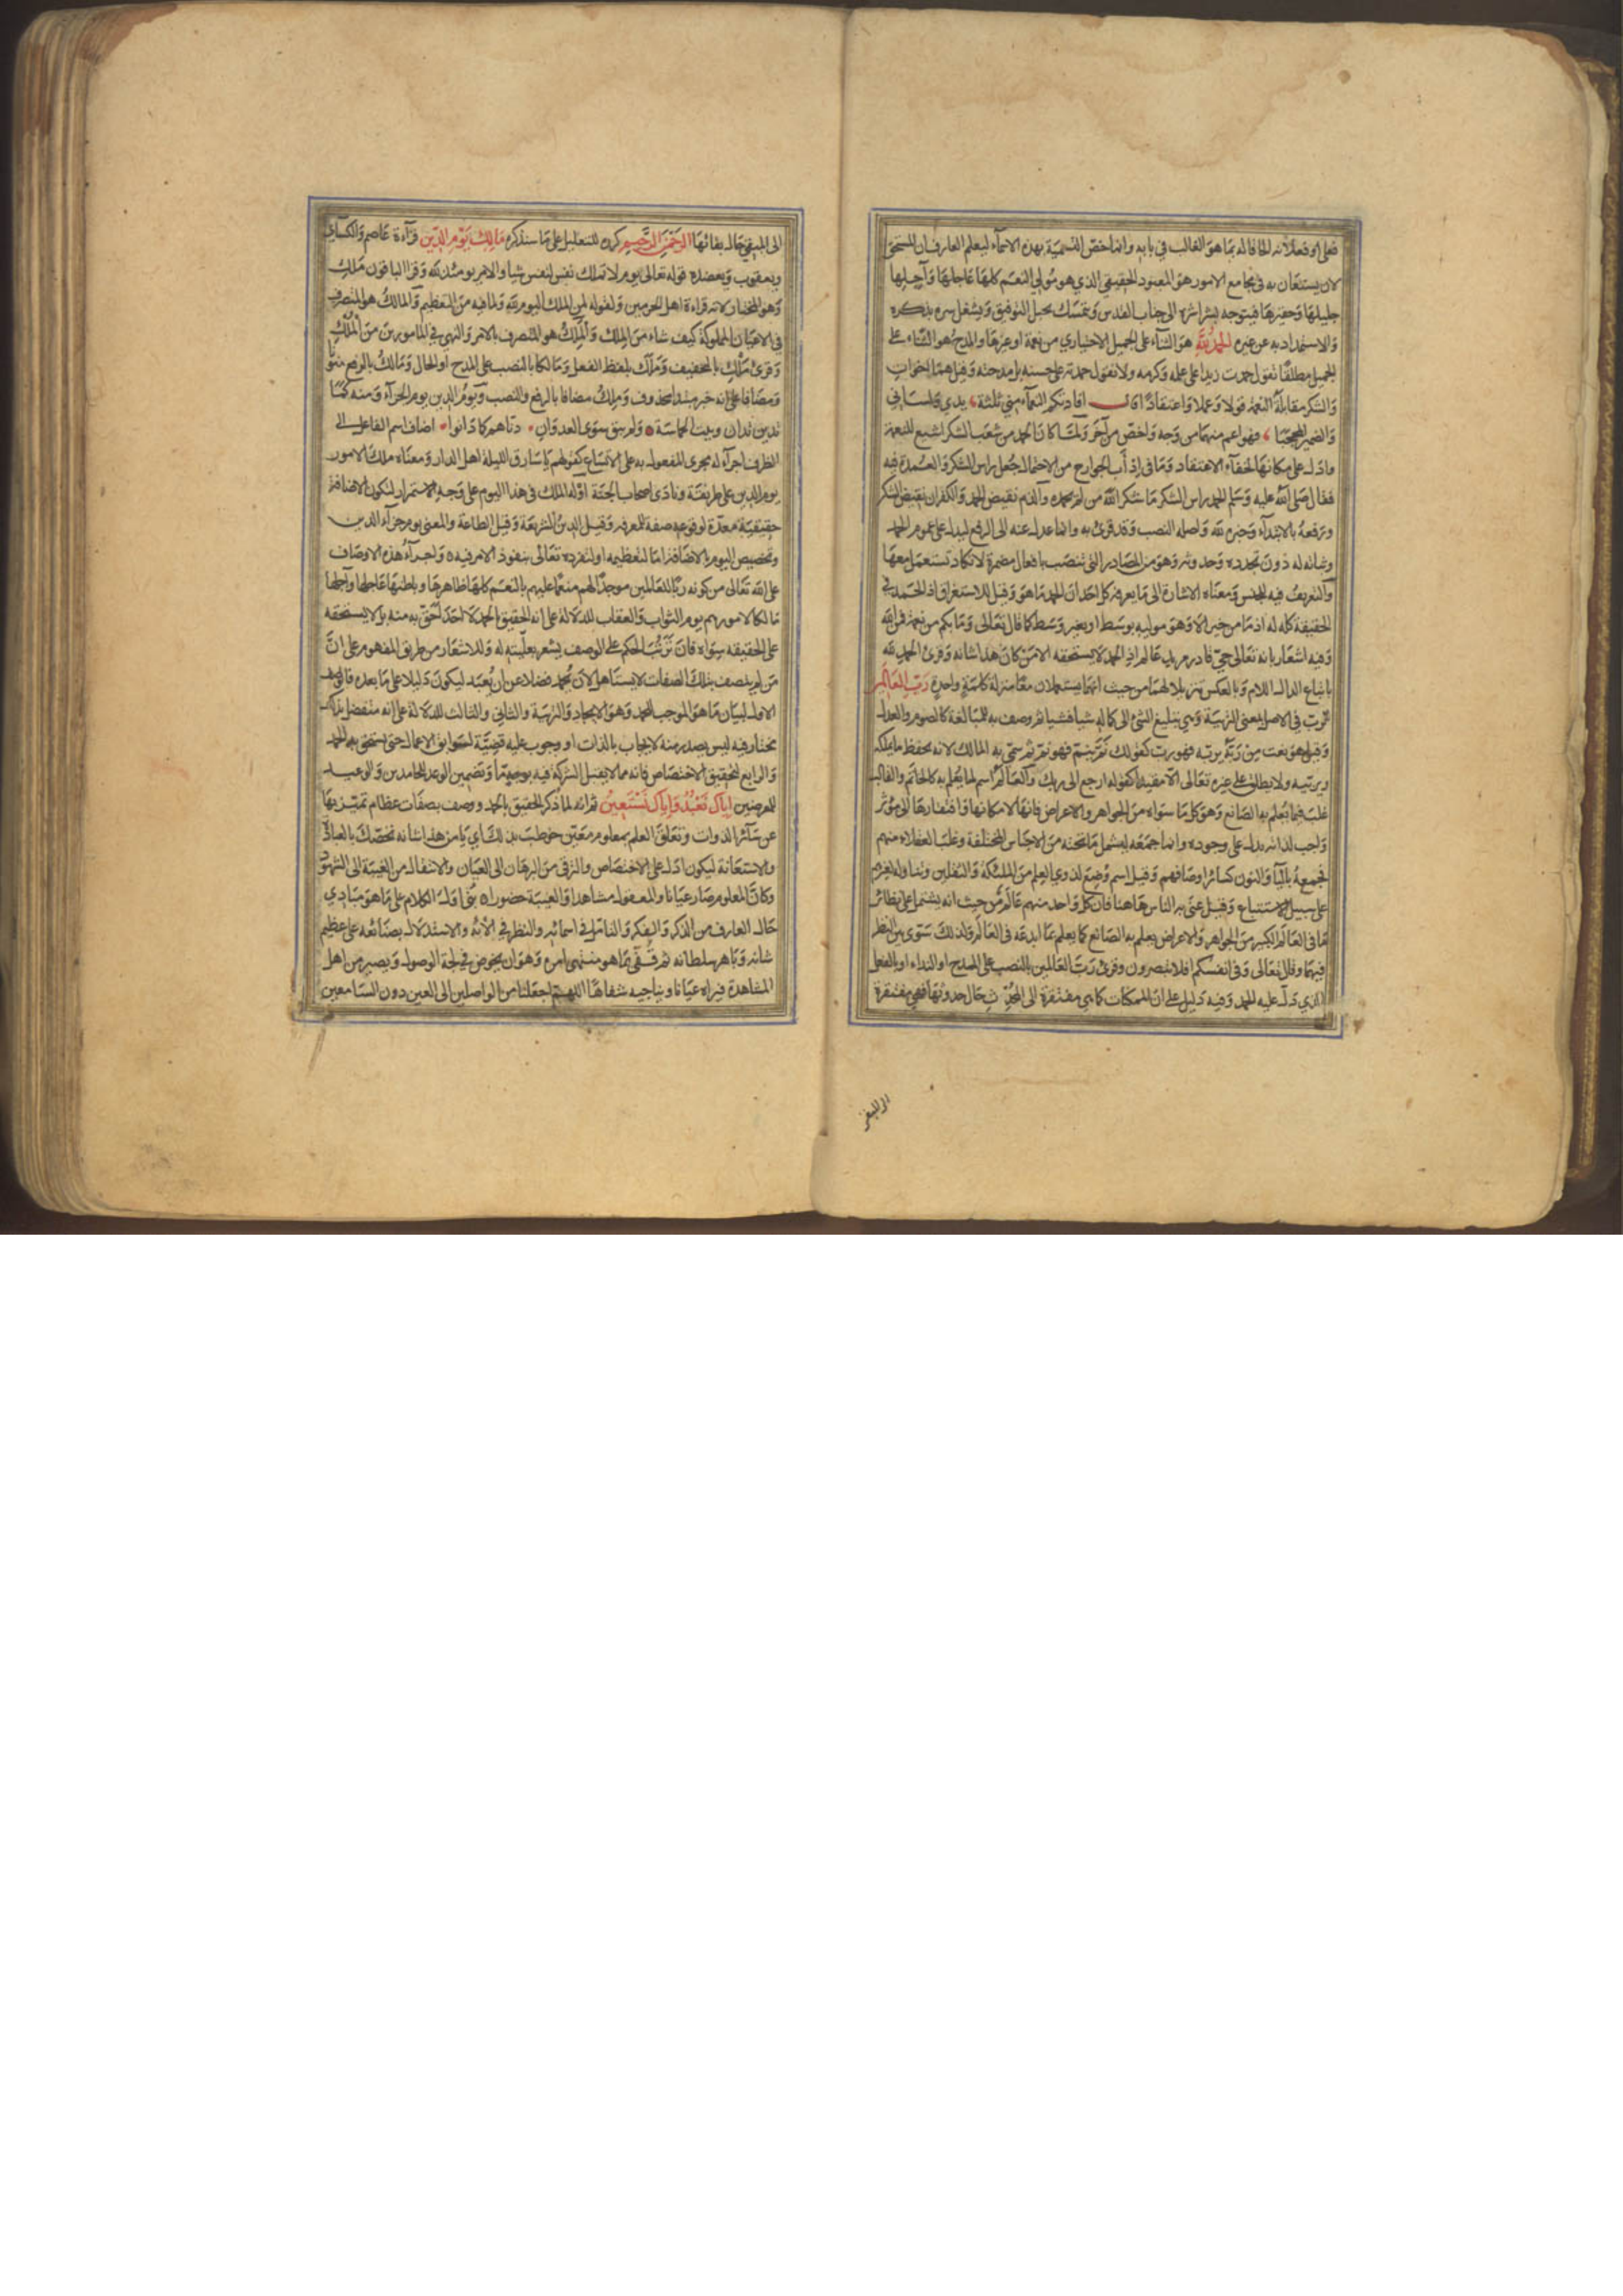 فعلى او فعلاً لانه الحاقا له بما هو الغالب في بابه وانما خص التسمية بهذه الاسماء ليعلم العارف ان المستحق
لان يستعان به في مجامع الامور هو المعبود الحقيقي الذي هو مولي النعم كلها عاجلها وآجلها
جليلها وحقيرها فيتوجه بشراشره الى جناب القدس ويتمسك بحبل التوفيق ويشغل سره بذكره
والاستمداد به عن غيره الحمد لله هو الثناء على الجميل الاختياري من نعمة او غيرها والمدح هو الثناء على
الجميل مطلقا تقول حمدت زيدا على علمه وكرمه ولا تقول حمدته على حسنه بل مدحته وقيل هما اخوان
والشكر مقابلة النعمة قولا وعملا واعتقادا قال افادتكم النعماء مني ثلثة يدي ولساني
والضمير المحجبا فهو اعم منهما من وجه واخص من آخر ولما كان الحمد من شعب الشكر اشيع للنعمة
وادل على مكانها لخفاء الاعتقاد وما في اداب الجوارح من الاحتمال جعل راس الشكر والعمدة فيه
فقال صلى الله عليه وسلم الحمد راس الشكر ما شكر الله من لم يحمده والذم نقيض الحمد والكفران نقيض الشكر
ورفعه بالابتداء وخبره لله واصله النصب وقد قرئ به وانما عدل عنه الى الرفع ليدل على عموم الحمد
وثباته له دون تجدده وحدوثه وهو من المصادر التي تنصب بافعال مضمرة لا تكاد تستعمل معها
والتعريف فيه للجنس ومعناه الاشارة الى ما يعرفه كل احد ان الحمد ما هو وقيل للاستغراق اذ الحمد في
الحقيقة كله له اذ ما من خير الا وهو موليه بوسط او بغير وسط كما قال تعالى وما بكم من نعمة فمن الله
وفيه اشعار بانه تعالى حي قادر مريد عالم اذ الحمد لا يستحقه الا من كان هذا شانه وقرئ الحمد لله
باتباع الدال اللام وبالعكس تنزيلا لهما من حيث انهما يستعملان معا منزلة كلمة واحدة رب العالمين
الرب في الاصل بمعنى التربية وهي تبليغ الشئ الى كماله شيا فشيا ثم وصف به للمبالغة كالصوم والعدل
وقيل هو نعت من ربه يربه فهو رب كقولك نم ينم فهو نم ثم سمي به المالك لانه يحفظ ما يملكه
ويربيه ولا يطلق على غيره تعالى الا مقيدا كقوله ارجع الى ربك والعالم اسم لما يعلم به كالخاتم والقالب
غلب فيما يعلم به الصانع وهو كل ما سواه من الجواهر والاعراض فانها لامكانها وافتقارها الى مؤثر
واجب لذاته يدل على وجوده وانما جمعه ليشمل ما تحته من الاجناس المختلفة وغلب العقلاء منهم
فجمعه بالياء والنون كسائر اوصافهم وقيل اسم وضع لذوي العلم من الملئكة والثقلين وتناوله لغيرهم
على سبيل الاستتباع وقيل عنى به الناس هاهنا فان كل واحد منهم عالم من حيث انه يشتمل على نظائر
ما في العالم الكبير من الجواهر والاعراض يعلم به الصانع كما يعلم بما ابدعه في العالم ولذلك سوى بين النظر
فيهما وقال تعالى وفي انفسكم افلا تبصرون وقرئ رب العالمين بالنصب على المدح او النداء او بالفعل
الذي دل عليه الحمد وفيه دليل على ان الممكنات كما هي مفتقرة الى المحدث حال حدوثها فهي مفتقرة
الى المبقي
الى المبقي حال بقائها الرحمن الرحيم كرره للتعليل على ما سنذكره مالك يوم الدين قراءة عاصم والكسائي
ويعقوب ويعضده قوله تعالى يوم لا تملك نفس لنفس شيا والامر يومئذ لله وقرا الباقون ملك
وهو المختار لانه قراءة اهل الحرمين ولقوله لمن الملك اليوم لله ولما فيه من التعظيم والمالك هو المتصرف
في الاعيان المملوكة كيف شاء من الملك والملك هو المتصرف بالامر والنهي في المامورين من الملك
وقرئ ملك بالتخفيف وملك بلفظ الفعل ومالكا بالنصب على المدح او الحال ومالك بالرفع منونا
ومضافا على انه خبر مبتدا محذوف وملك مضافا بالرفع والنصب ويوم الدين يوم الجزاء ومنه كما
تدين تدان وبيت الحماسة ولم يبق سوى العدوان دناهم كما دانوا اضاف اسم الفاعل الى
الظرف اجراء له مجرى المفعول به على الاتساع كقولهم يا سارق الليلة اهل الدار ومعناه ملك الامور
يوم الدين على طريقة ونادى اصحاب الجنة او له الملك في هذا اليوم على وجه الاستمرار لتكون الاضافة
حقيقية معدة لوقوعه صفة للمعرفة وقيل الدين الشريعة وقيل الطاعة والمعنى يوم جزاء الدين
وتخصيص اليوم بالاضافة اما لتعظيمه او لتفرده تعالى بنفوذ الامر فيه واجراء هذه الاوصاف
على الله تعالى من كونه ربا للعالمين موجدا لهم منعما عليهم بالنعم كلها ظاهرها وباطنها عاجلها وآجلها
مالكا لامورهم يوم الثواب والعقاب للدلالة على انه الحقيق بالحمد لا احد احق به منه بل لا يستحقه
على الحقيقه سواه فان ترتب الحكم على الوصف يشعر بعليته له وللاشعار من طريق المفهوم على ان
من لم يتصف بتلك الصفات لا يستاهل لان يحمد فضلا عن ان يعبد ليكون دليلا على ما بعده فالوصف
الاول لبيان ما هو الموجب للحمد وهو الايجاد والتربية والثاني والثالث للدلالة على انه متفضل بذلك
مختار فيه ليس يصدر منه لايجاب بالذات او وجوب عليه قضية لسوابق الاعمال حتى يستحق به الحمد
والرابع لتحقيق الاختصاص فانه مما لا يقبل الشركة فيه بوجه ما وتضمين الوعد للحامدين والوعيد
للمعرضين اياك نعبد واياك نستعين ثم انه لما ذكر الحقيق بالحمد ووصف بصفات عظام تميز بها
عن سائر الذوات وتعلق العلم بمعلوم معين خوطب بذلك اي يا من هذا شانه نخصك بالعبادة
والاستعانة ليكون ادل على الاختصاص والترقي من البرهان الى العيان والانتقال من الغيبة الى الشهود
وكان المعلوم صار عيانا والمعقول مشاهدا والغيبة حضورا بنى اول الكلام على ما هو مبادي
حال العارف من الذكر والفكر والتامل في اسمائه والنظر في الائه والاستدلال بصنائعه على عظيم
شانه وباهر سلطانه ثم قفى بما هو منتهى امره وهو ان يخوض في لجة الوصول ويصير من اهل
المشاهدة فيراه عيانا ويناجيه شفاها اللهم اجعلنا من الواصلين الى العين دون السامعين